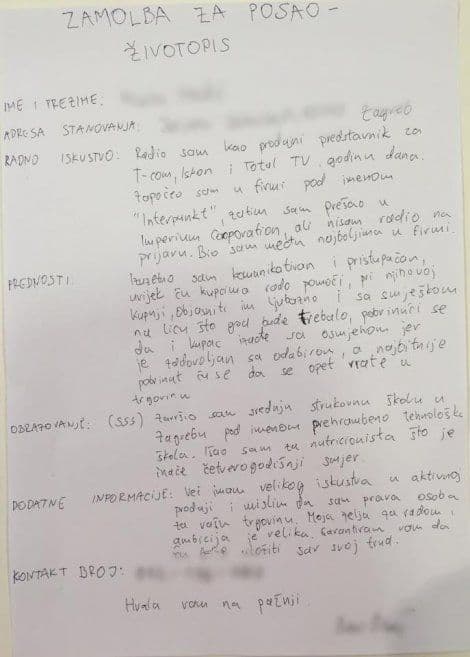 ZAMOLBA ZA POSAO -
ŽIVOTOPIS
IME I PREZIME:
ADRESA STANOVANJA: Zagreb
RADNO ISKUSTVO: Radio sam kao prodajni predstavnik za
T-com, Iskon i Total TV, godinu dana.
Započeo sam u firmi pod imenom
"Interpunkt", zatim sam prešao u
Imperium Cooporation, ali nisam radio na
prijavu. Bio sam među najboljima u firmi.
PREDNOSTI: Izuzetno sam komunikativan i pristupačan,
uvijek ću kupcima rado pomoći, pri njihovoj
kupnji, objasniti im ljubazno i sa smješkom
na licu što god bude trebalo, pobrinuti se
da i kupac izađe sa osmjehom jer
je zadovoljan sa odabirom, a najbitnije
pobrinut ću se da se opet vrate u
trgovinu
OBRAZOVANJE: (SSS) Završio sam srednju strukovnu školu u
Zagrebu pod imenom prehrambeno tehnološka
škola. Išao sam za nutricionista što je
inače četverogodišnji smjer.
DODATNE INFORMACIJE: Već imam velikog iskustva u aktivnoj
prodaji i mislim da sam prava osoba
za vašu trgovinu. Moja želja za radom i
ambicija je velika. Garantiram vam da
ću uložiti sav svoj trud.
KONTAKT BROJ:
Hvala vam na pažnji